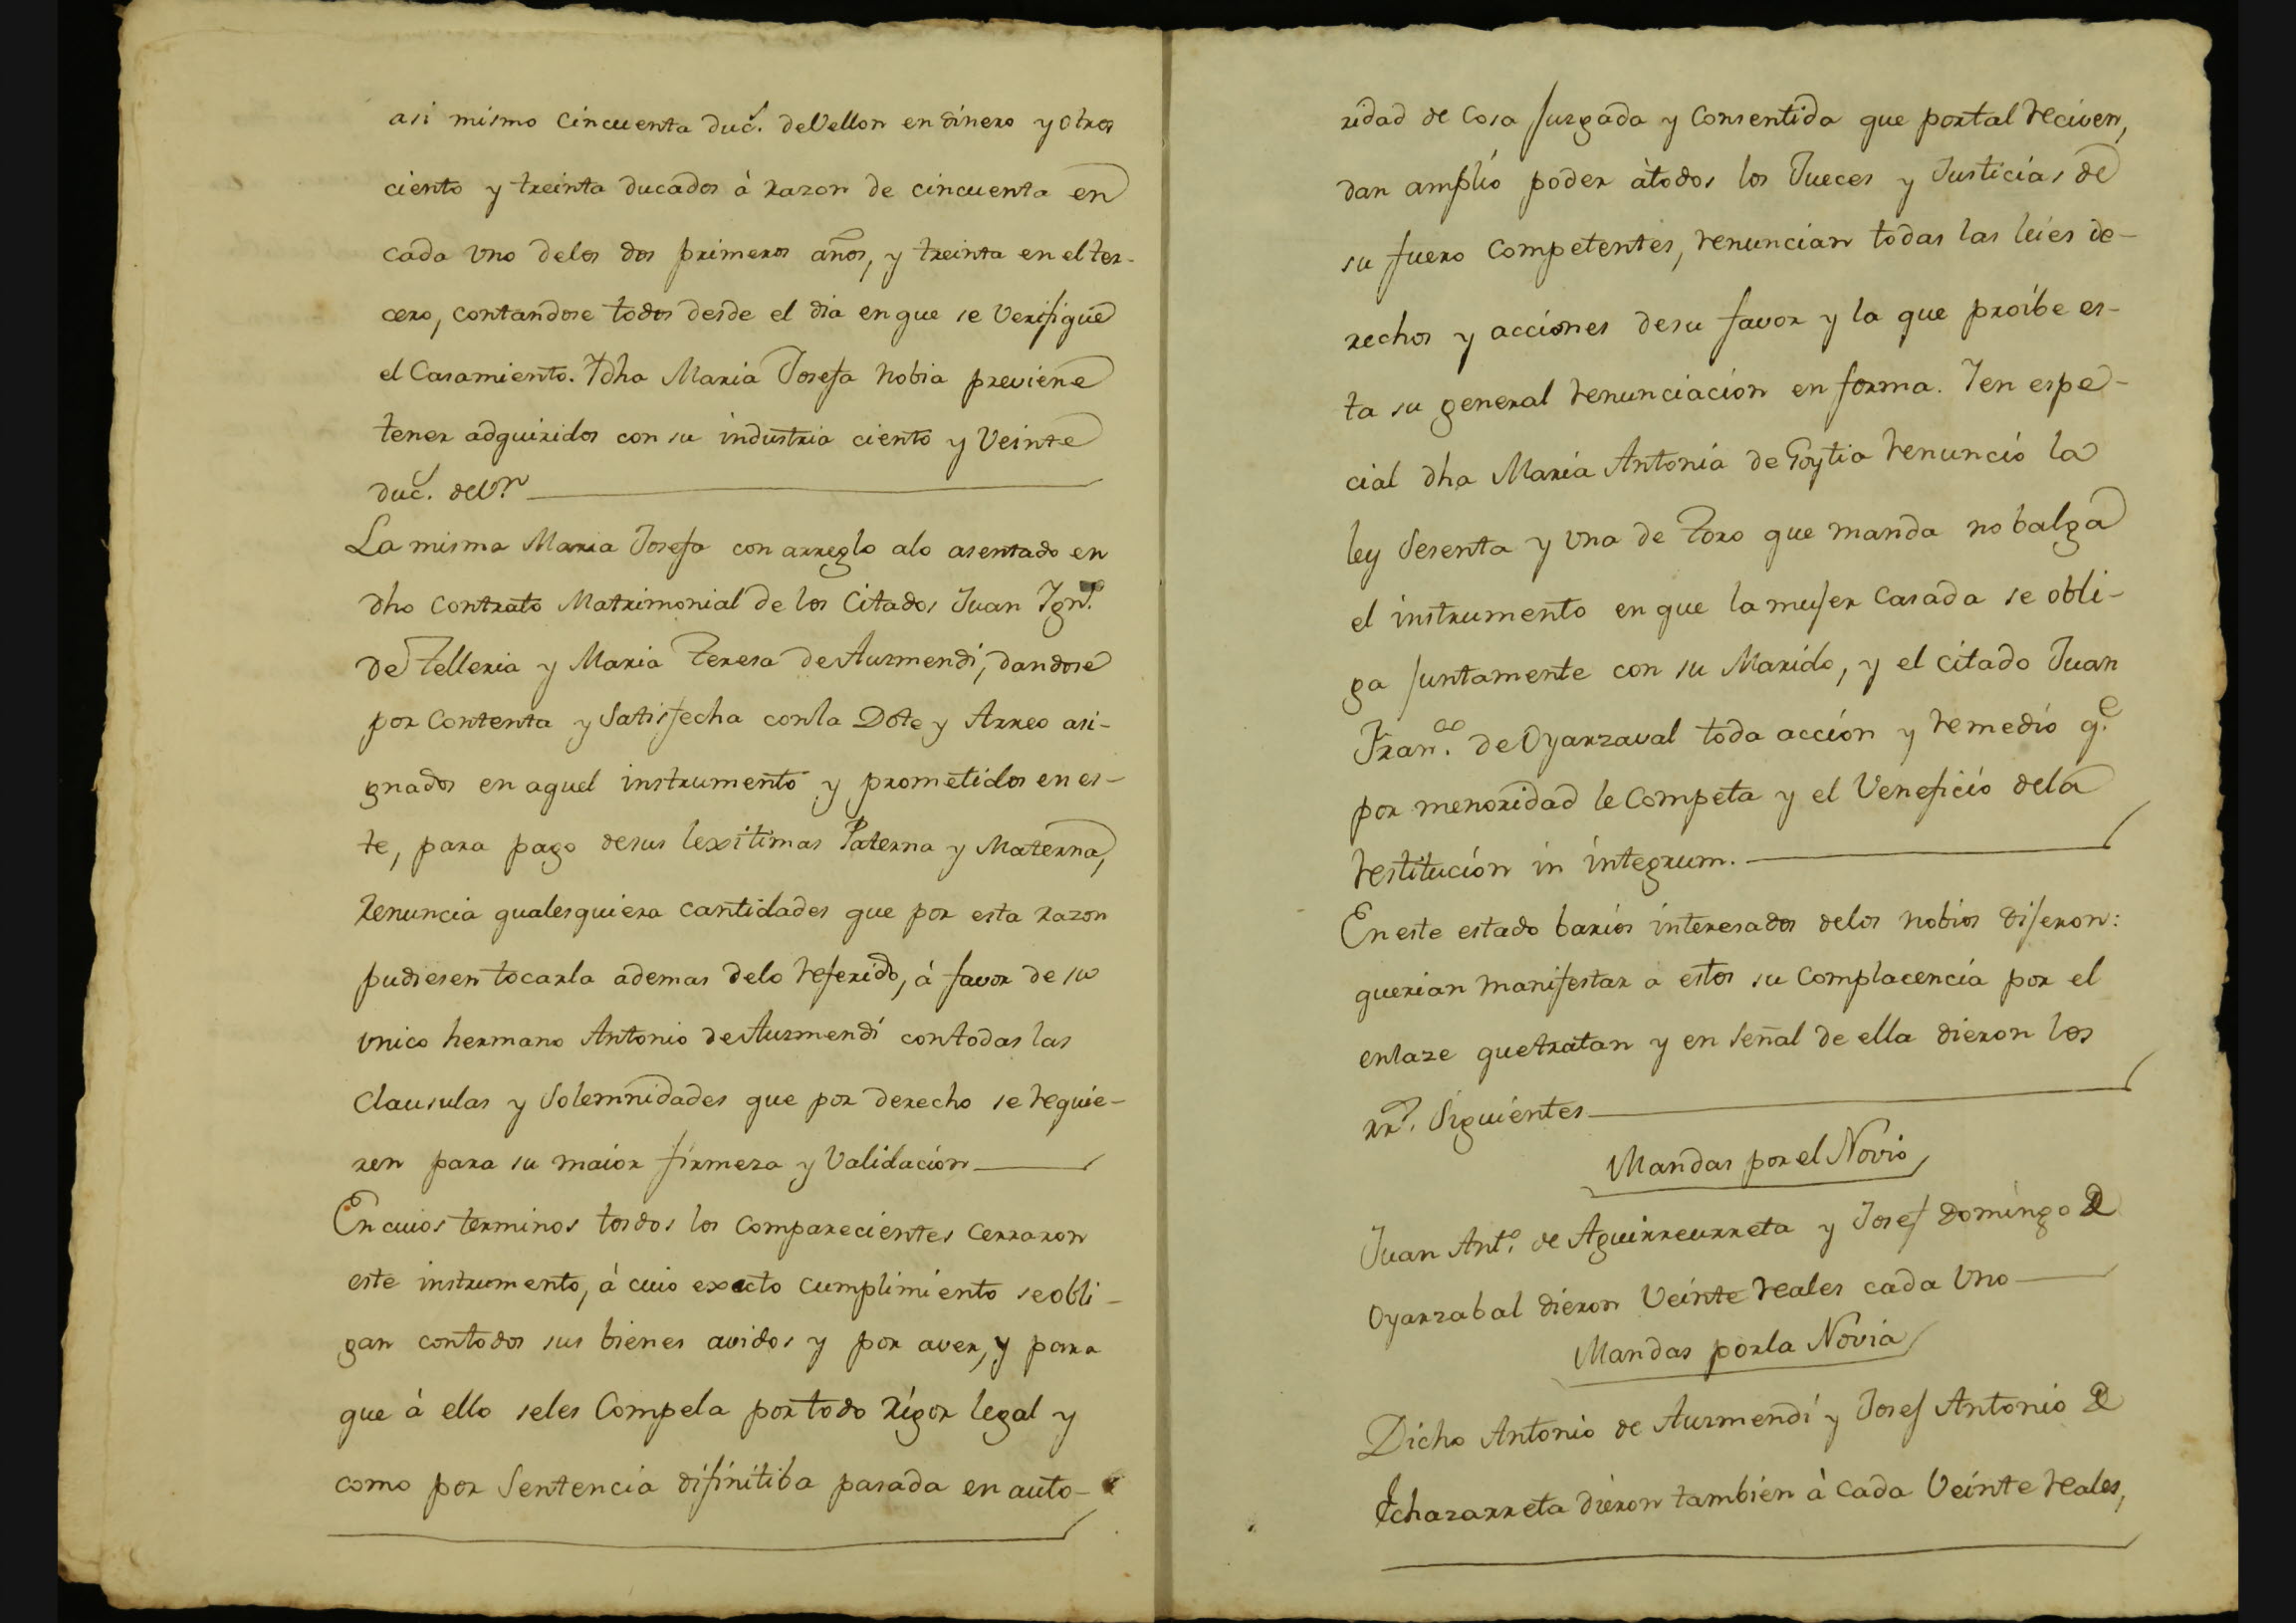 asi mismo cincuenta duc.s de Vellon en dinero y otros
ciento y treinta ducados à razon de cincuenta en
cada uno delos dos primeros años, y treinta en el ter-
cero, contandose todos desde el dia en que se Verifique
el Casamiento. Y dha Maria Josefa nobia previene
tener adquiridos con su industria ciento y Veinte
duc.s de V.n
La misma Maria Josefa con arreglo alo asentado en
dho Contrato Matrimonial de los Citados Juan Ign.o
de Telleria y Maria Teresa de Auzmendi, dandose
por Contenta y Satisfecha conla Dote y Arreo asi-
gnados en aquel instrumento y prometidos en es-
te, para pago desus lexitimas Paterna y Materna,
Renuncia qualesquiera cantidades que por esta razon
pudiesen tocarla ademas delo referido, à favor de su
unico hermano Antonio de Auzmendi contodas las
Clausulas y Solemnidades que por derecho se requie-
ren para su maior firmeza y Validacion
En cuios terminos tosdos los comparecientes cerraron
este instrumento, à cuio exacto cumplimiento se obli-
gan contodos sus bienes avidos y por aver, y para
que à ello seles Compela por todo Rigor legal y
como por Sentencia difinitiba pasada en auto-
ridad de Cosa Juzgada y Consentida que portal reciven,
dan amplio poder àtodos los Jueces y Justicias de
su fuero Competentes, renuncian todas las leies de-
rechos y acciones desu favor y la que proibe es-
ta su general renunciacion en forma. Y en espe-
cial dha Maria Antonia de Goytia renunció la
ley Sesenta y una de Toro que manda no balga
el instrumento en que la mujer Casada se obli-
ga Juntamente con su Marido, y el citado Juan
Fran.co de Oyarzaval toda acción y remedio q.e
por menoridad le Competa y el Veneficio dela
restitución in integrum.
En este estado barios interesados delos nobios dijeron:
querian manifestar a estos su Complacencia por el
enlaze quetratan y en Señal de ella dieron los
rr.s Siguientes
Mandas por el Novio
Juan Ant.o de Aguirreurreta y Josef Domingo de
Oyarzabal dieron Veinte reales cada Uno
Mandas porla Novia
Dicho Antonio de Auzmendi y Josef Antonio de
Echazarreta dieron tambien à cada Veinte reales,